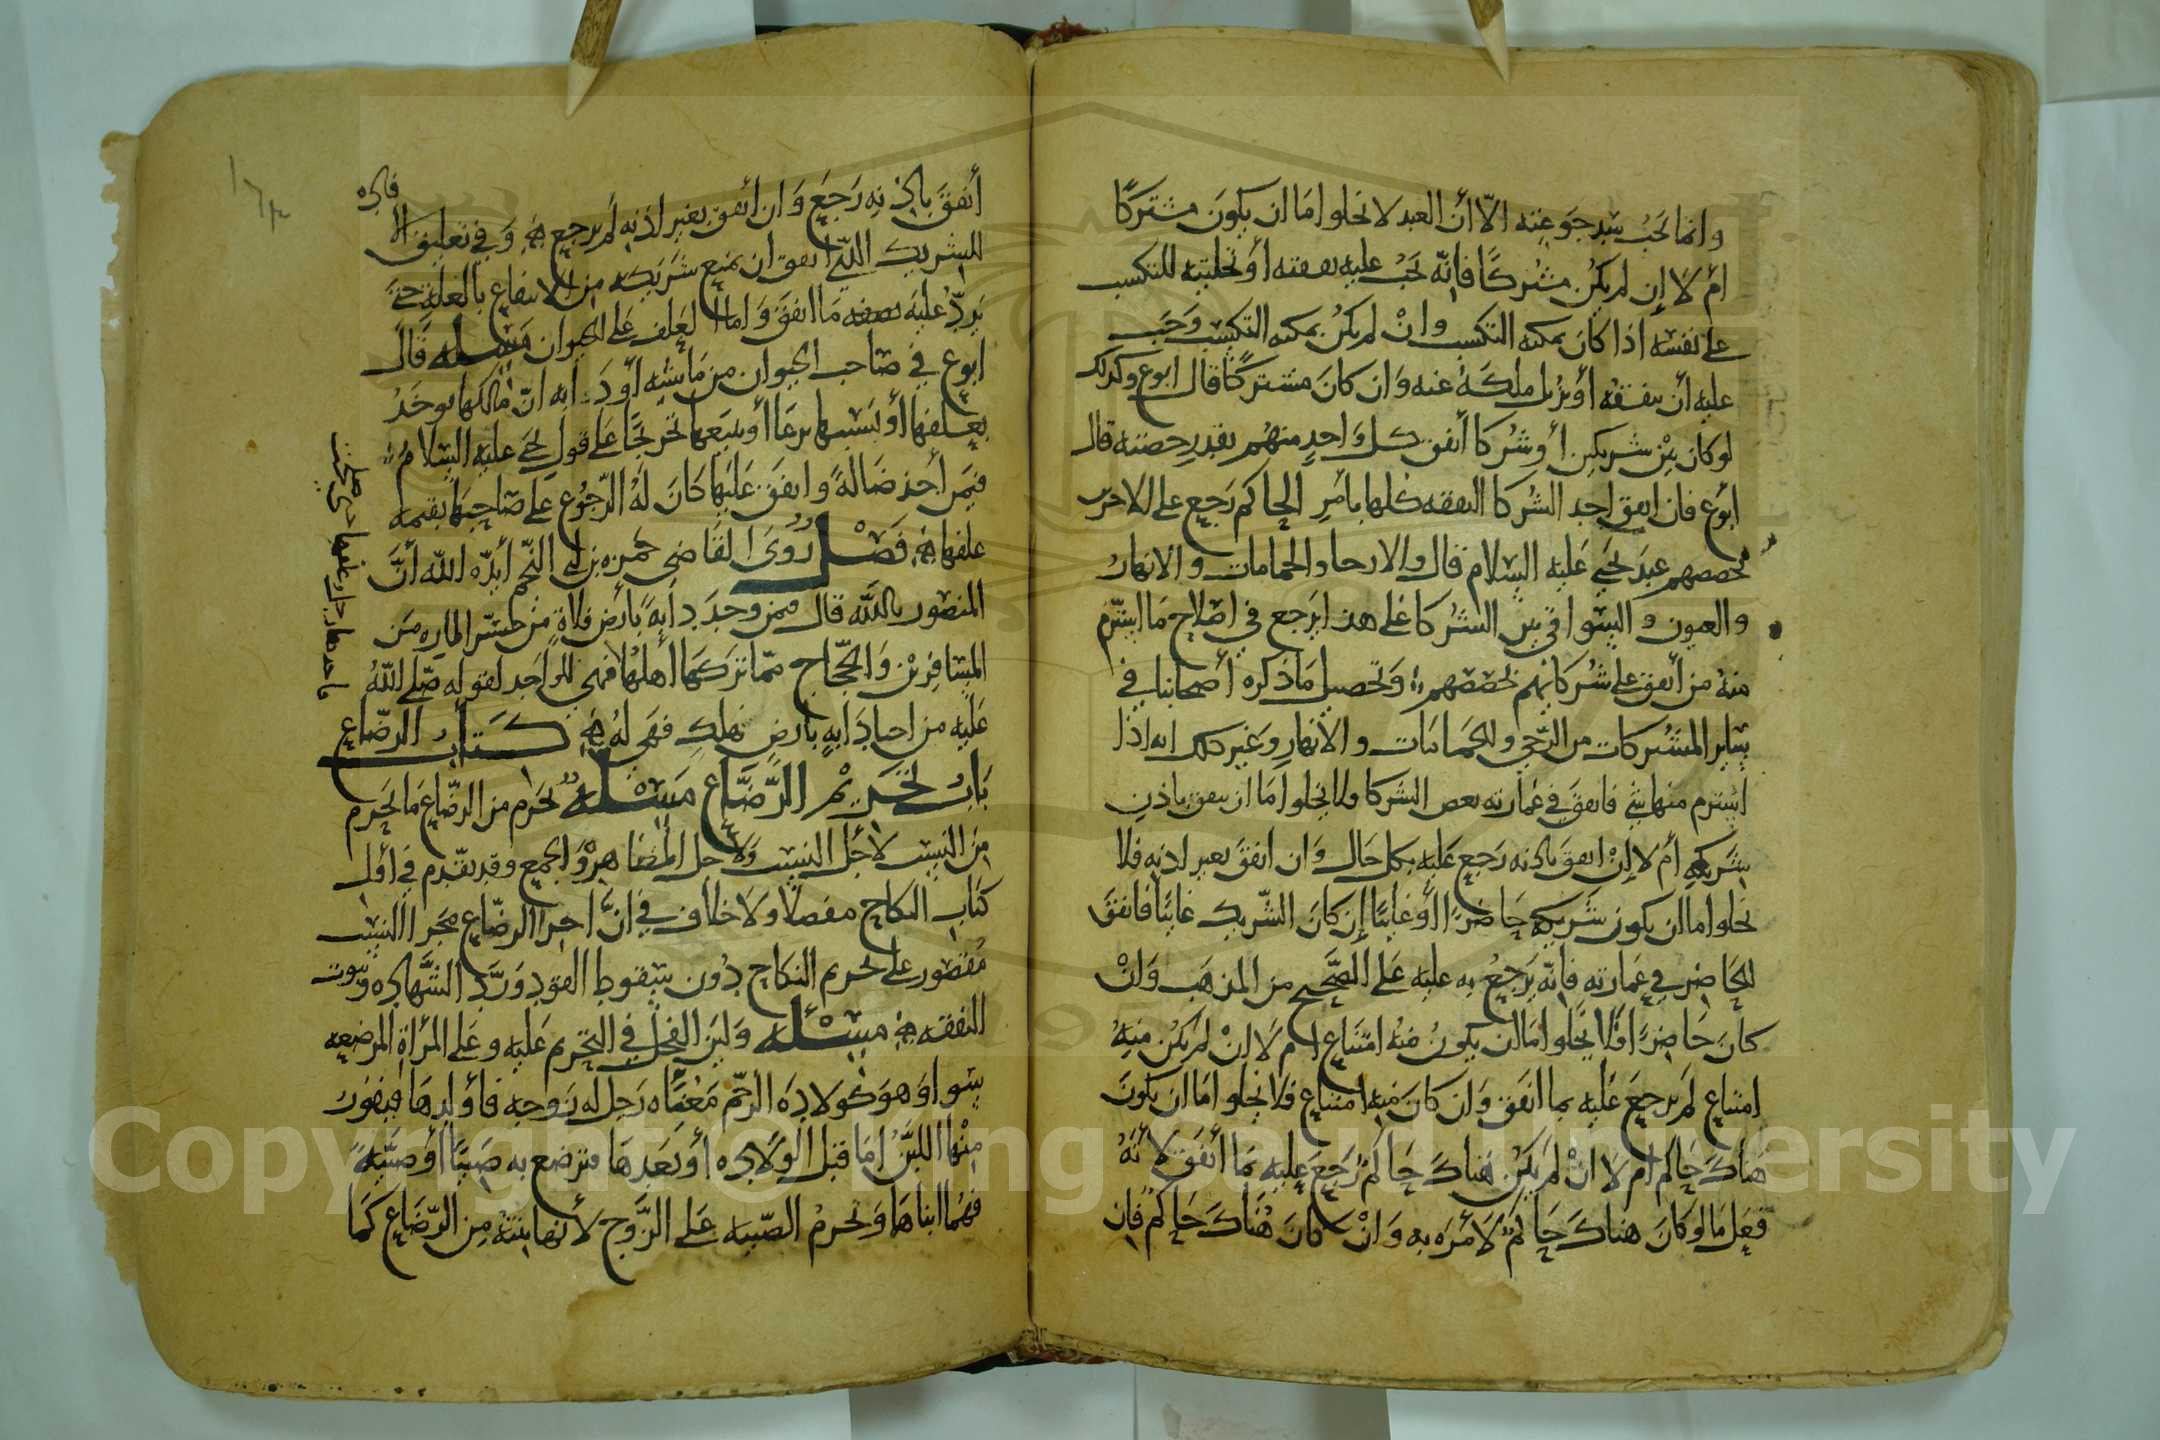 وانما يجب سد جوعته الا أن العبد لا يخلو اما ان يكون مشتركا
ام لا إن لم يكن مشتركا فانه يجب عليه نفقته أو تخليته للتكسب
على نفسه اذا كان يمكنه التكسب وان لم يكن يمكنه التكسب وجب
عليه أن ينفقه أو يزيل ملكه عنه وان كان مشتركا قال ابوع وكذلك
لو كان بين شريكين أو شركا أنفق كل واحد منهم بقدر حصته قال
ابوع فان انفق احد الشركا النفقه كلها بأمر الحاكم رجع على الاخر
بحصصهم عند يحيى عليه السلام قال والارحا والحمامات والانهار
والعيون والسواقي بين الشركا على هذا يرجع في اصلاح ما استرم
منه من أنفق على شركائهم بحصصهم وتحصيل ما ذكره أصحابنا في
ساير المشتركات من الرحى والحمامات والانهار وغير ذلك انه اذا
استرم منها شي فانفق في عمارته بعض الشركا ولا يخلو اما ان ينفق باذن
شريكه أم لا إن انفق باذنه رجع عليه بكل حال وان انفق بغير اذنه فلا
يخلو اما ان يكون شريكه حاضرا أو غايبا إن كان الشريك غائبا فانفق
الحاضر في عمارته فانه يرجع به عليه على الصحيح من المذهب وان
كان حاضرا فلا يخلو اما ان يكون منه امتناع ام لا ان لم يكن منه
امتناع لم يرجع عليه بما انفق وان كان منه امتناع فلا يخلو اما ان يكون
هناك حاكم ام لا ان لم يكن هناك حاكم رجع عليه بما أنفق لانه
فعل ما لو كان هناك حاكم لأمره به وان كان هناك حاكم فان
أنفق باذنه رجع وان أنفق بغير اذنه لم يرجع وفي تعليق الا
فاده
للشريك الذي انفق ان يمنع شريكه من الانتفاع بالغلة حتى
يرد عليه نصف ما انفق واما العلف على الحيوان مسئله قال
ابوع في صاحب الحيوان من ماشيه أو دابه ان مالكها يوخذ
بعلفها أو يسيبها ترعا أو يبيعها تخريجا على قول يحيى عليه السلام
فيمن أخذ ضالة وانفق عليها كان له الرجوع على صاحبها بقيمه
علفها فصل روى القاضي حمزه بن ابي النجم أيده الله أن
المنصور بالله قال فيمن وجد دابة بأرض فلاة من طسر الماره من
المسافرين والحجاج مما تركها أهلها فهي للواجد لقوله صلى الله
عليه من احيا دابه بارض تهلك فهي له كتاب الرضاع
باب تحريم الرضاع مسئله يحرم من الرضاع ما يحرم
من النسب لاجل النسب ولاجل المضاهرة والجمع وقد تقدم في أول
كتاب النكاح مفصلا ولا خلاف في ان اجرا الرضاع مجرا النسب
مقصور على تحريم النكاح دون سقوط القود ورد الشهاده وثبوت
النفقه مسئله ولبن الفحل في التحريم عليه وعلى المرأة المرضعه
سوا وهو كولادة الرحم معناه رجل له زوجه فأولدها فيفور
منها اللبن اما قبل الولاده أو بعدها فترضع به صبيا أو صبية
فهما ابناها وتحرم الصبيه على الزوج لأنها بنته من الرضاع كما